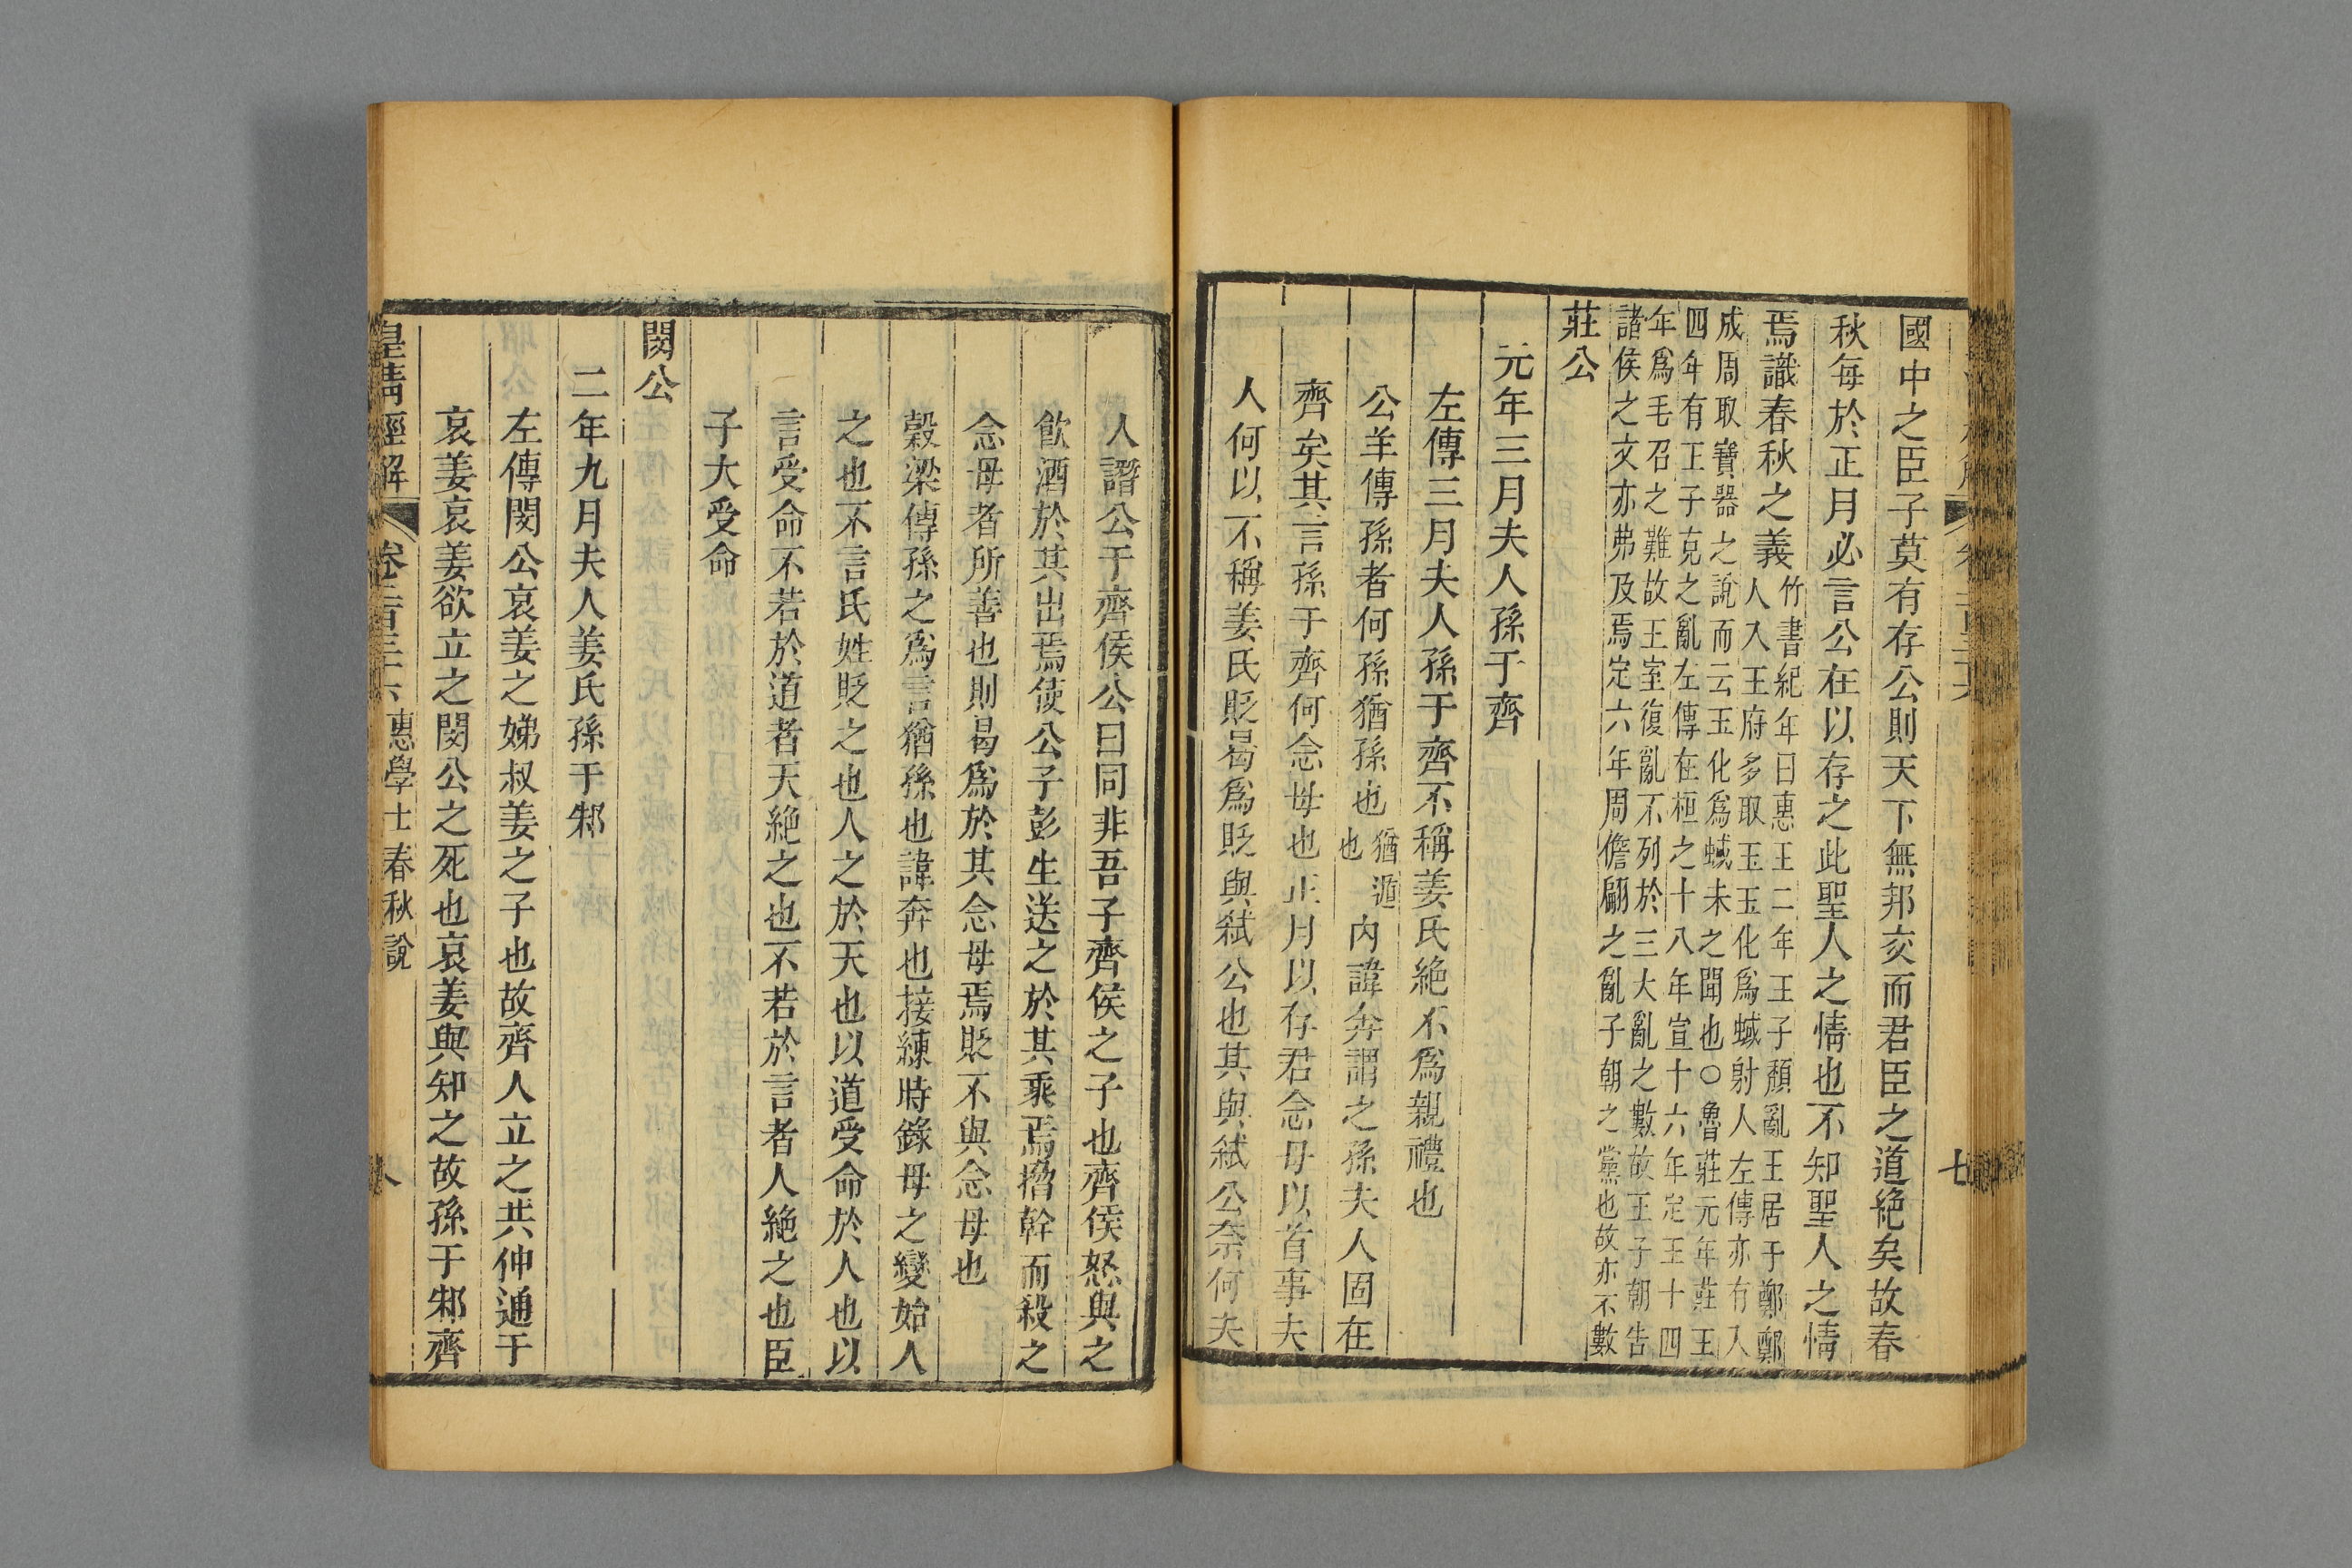 國中之臣子莫有存公則天下無邦交而君臣之道絶矣故春
秋每於正月必言公在以存之此聖人之情也不知聖人之情
焉識春秋之義竹書紀年曰惠王二年王子頹亂王居于鄭鄭
人入王府多取玉玉化爲蜮射人左傳亦有入
成周取寶器之說而云玉化爲蜮未之聞也○魯莊元年莊王
四年有王子克之亂左傳在桓之十八年宣十六年定王十四
年爲毛召之難故王室復亂不列於三大亂之數故王子朝告
諸侯之文亦弗及焉定六年周儋翩之亂子朝之黨也故亦不數
莊公
元年三月夫人孫于齊
左傳三月夫人孫于齊不稱姜氏絶不爲親禮也
公羊傳孫者何孫猶孫也猶遁
也
內諱奔謂之孫夫人固在
齊矣其言孫于齊何念母也正月以存君念母以首事夫
人何以不稱姜氏貶曷爲貶與弒公也其與弒公奈何夫
七
人譖公于齊侯公曰同非吾子齊侯之子也齊侯怒與之
飮酒於其出焉使公子彭生送之於其乘焉搚幹而殺之
念母者所善也則曷爲於其念母焉貶不與念母也
穀梁傳孫之爲言猶孫也諱奔也接練時錄母之變始人
之也不言氏姓貶之也人之於天也以道受命於人也以
言受命不若於道者天絶之也不若於言者人絶之也臣
子大受命
閔公
二年九月夫人姜氏孫于邾
左傳閔公哀姜之娣叔姜之子也故齊人立之共仲通于
哀姜哀姜欲立之閔公之死也哀姜與知之故孫于邾齊
皇淸經解 卷二百三十六 惠學士春秋說 八